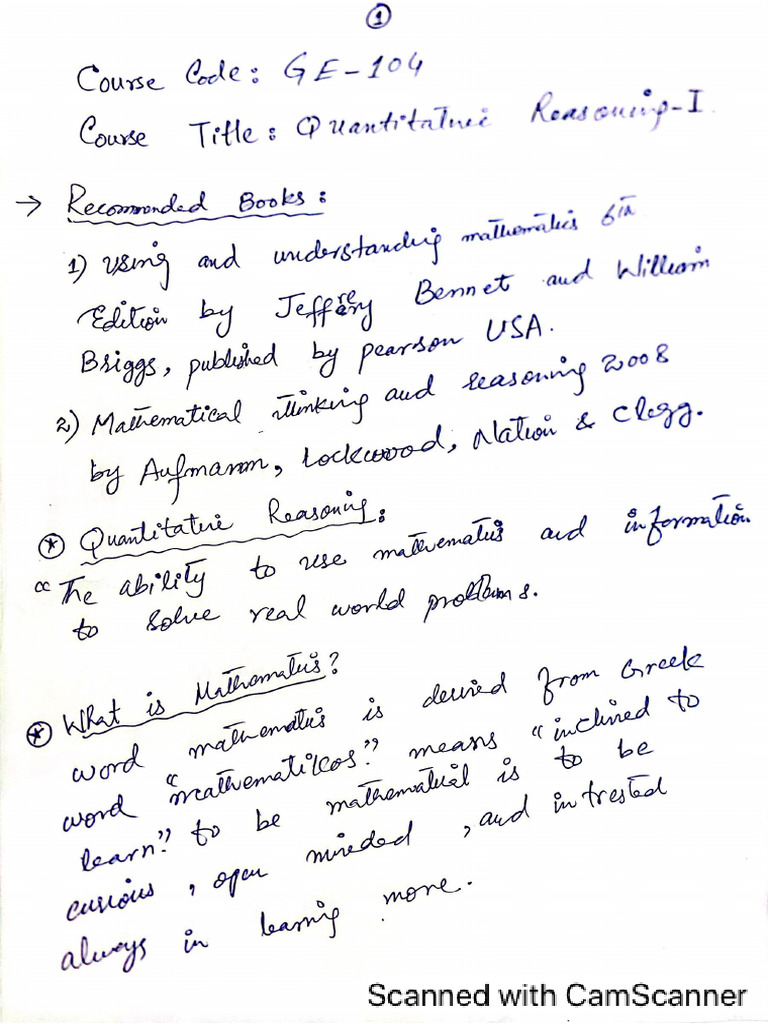 1
Course Code: GE-104
Course Title: Quantitative Reasoning-I.
→ Recommended Books:
1) Using and understanding mathematics 6th
Edition by Jeffrery Bennet and William
Briggs, published by pearson USA.
2) Mathematical thinking and reasoning 2008
by Aufmann, Lockwood, Nation & Clegg.
* Quantitative Reasoning:
"The ability to use mathematics and information
to solve real world problems.
* What is Mathematics?
word mathematics is derived from Greek
word "mathematikos." means "inclined to
learn." to be mathematical is to be
curious, open minded, and intrested
always in learning more.
Scanned with CamScanner